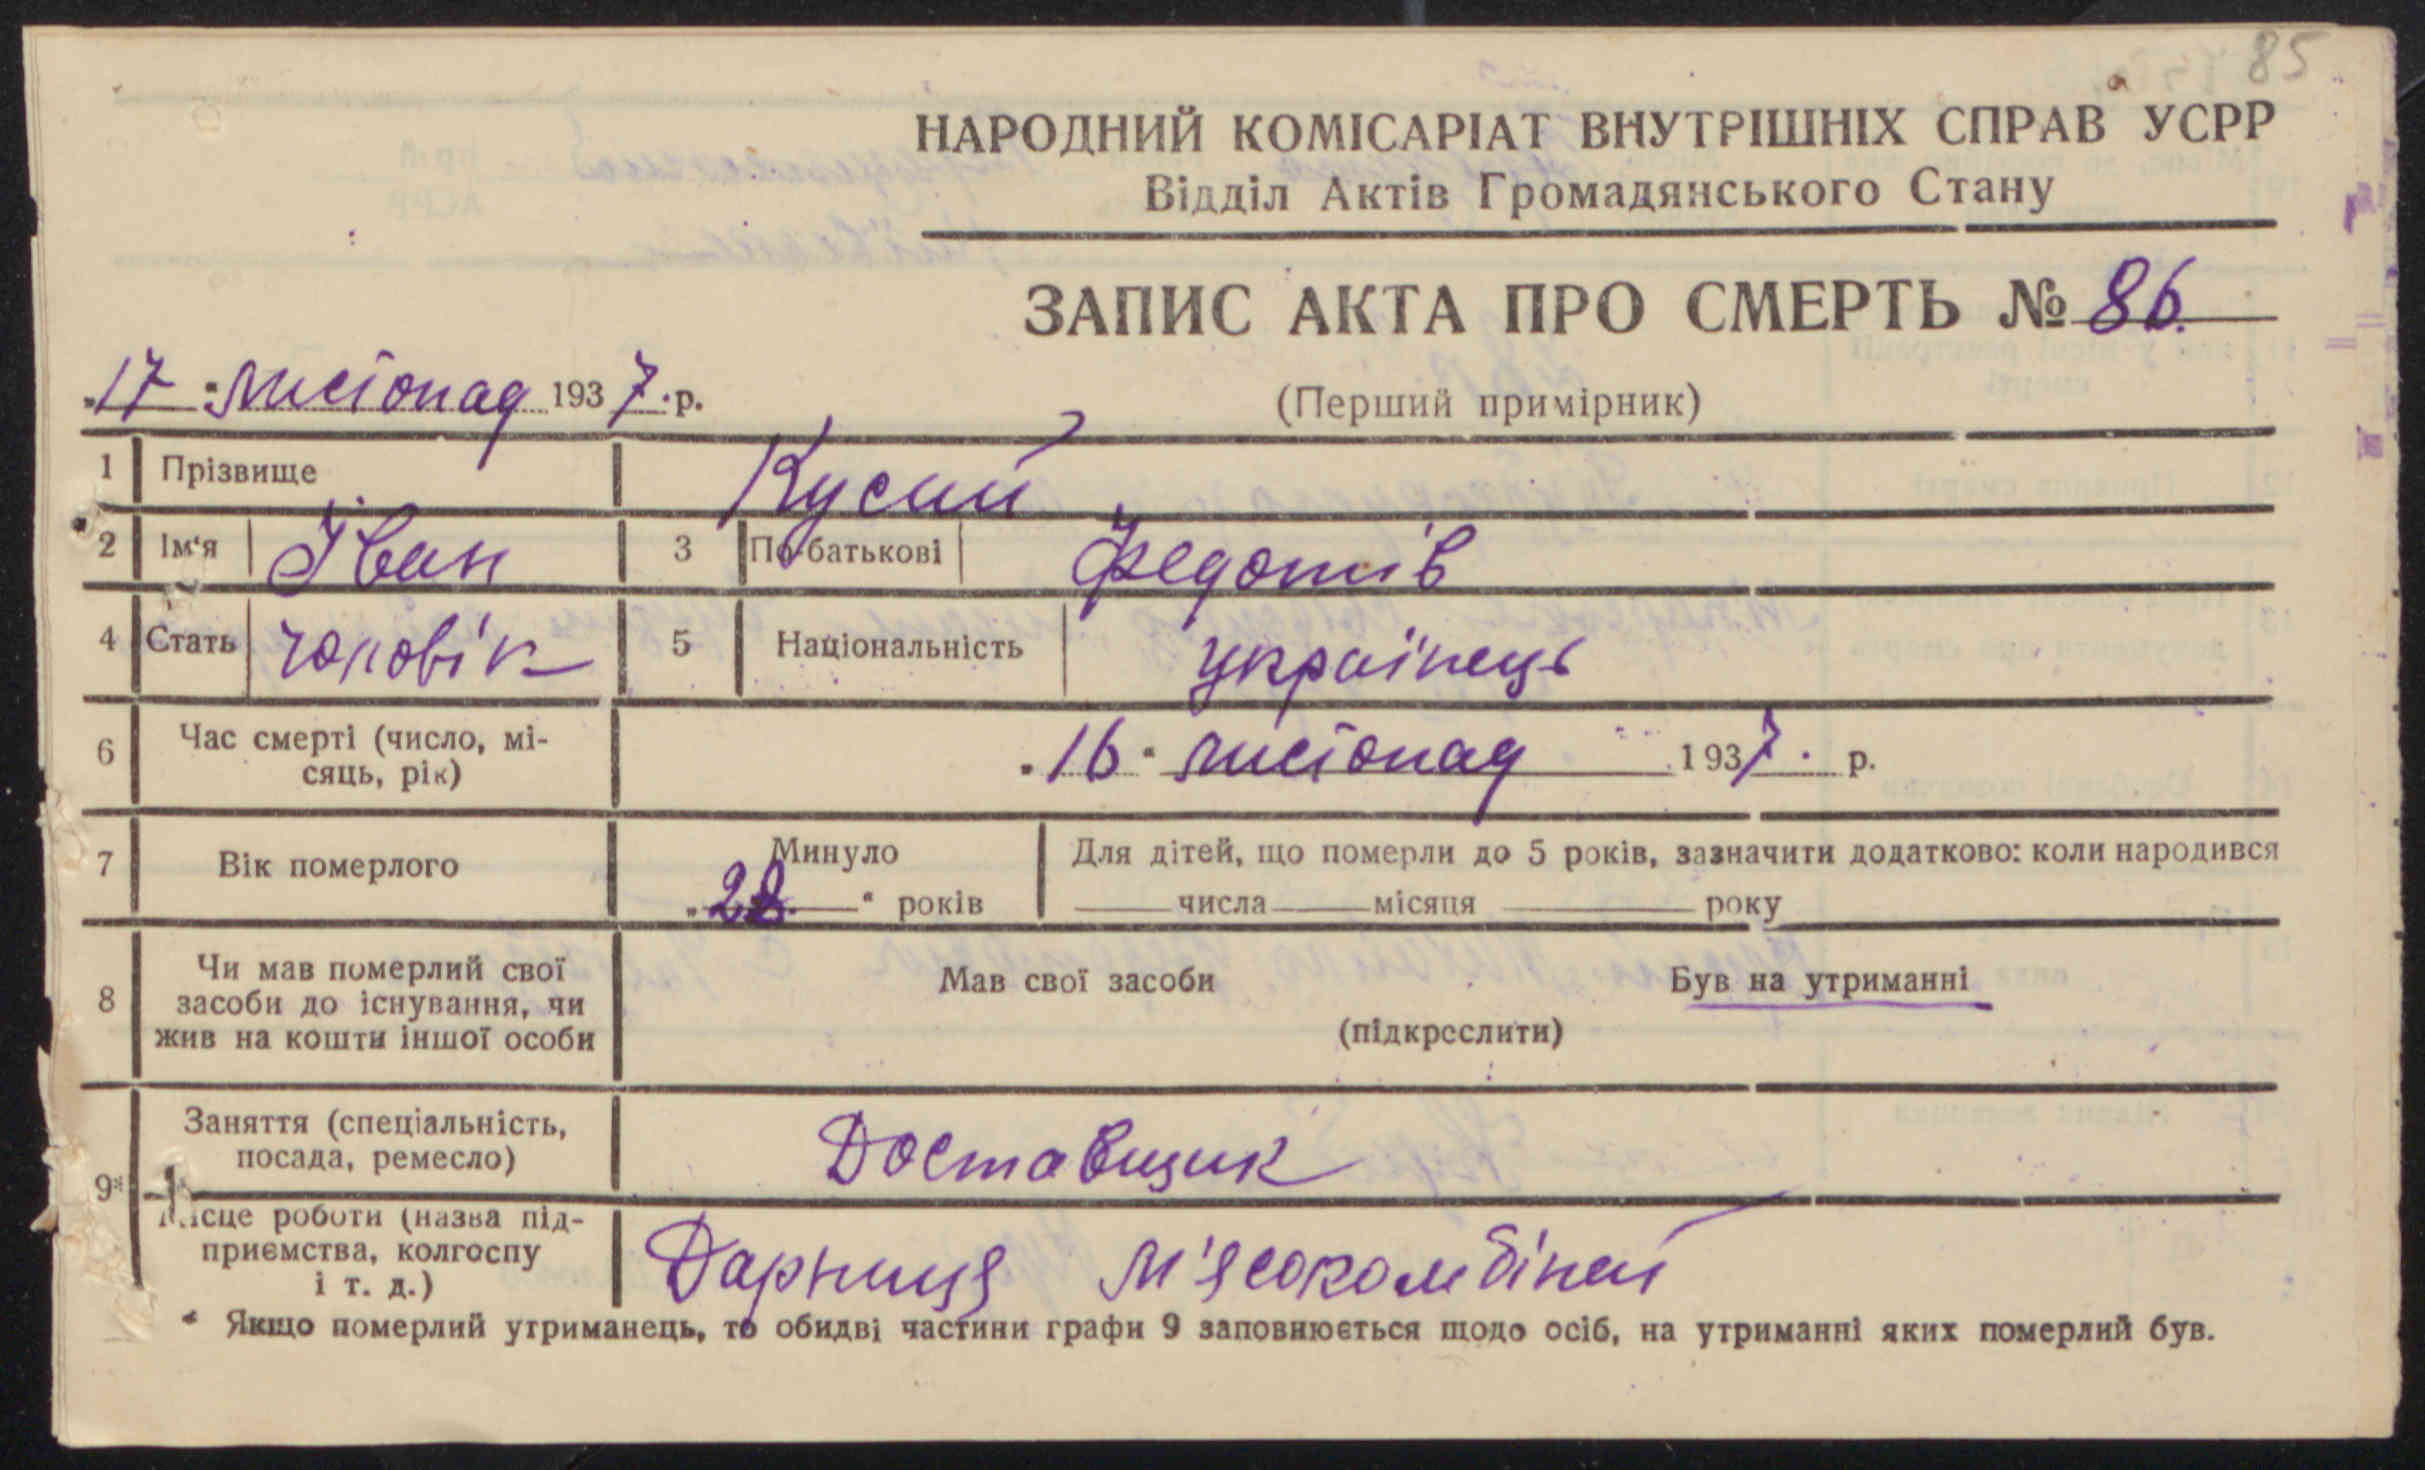 85
НАРОДНИЙ КОМІСАРІАТ ВНУТРІШНІХ СПРАВ УСРР
Відділ Актів Громадянського Стану
ЗАПИС АКТА ПРО СМЕРТЬ № 86.
„17“ листопад 1937 р.
(Перший примірник)
1 Прізвище Кусий
2 Ім'я Іван 3 По-батькові Федотів
4 Стать чоловік 5 Національність українець
6 Час смерті (число, мі-
сяць, рік) „16“ листопад 1937. р.
7 Вік померлого Минуло Для дітей, що померли до 5 років, зазначити додатково: коли народився
„28.“ років числа місяця року
8 Чи мав померлий свої
засоби до існування, чи
жив на кошти іншої особи
Мав свої засоби Був на утриманні
(підкреслити)
9* Заняття (спеціальність,
посада, ремесло) Доставщик
Місце роботи (назва під-
приємства, колгоспу
і т. д.) Дарниця М'ясокомбінат
* Якщо померлий утриманець, то обидві частини графи 9 заповнюється щодо осіб, на утриманні яких померлий був.